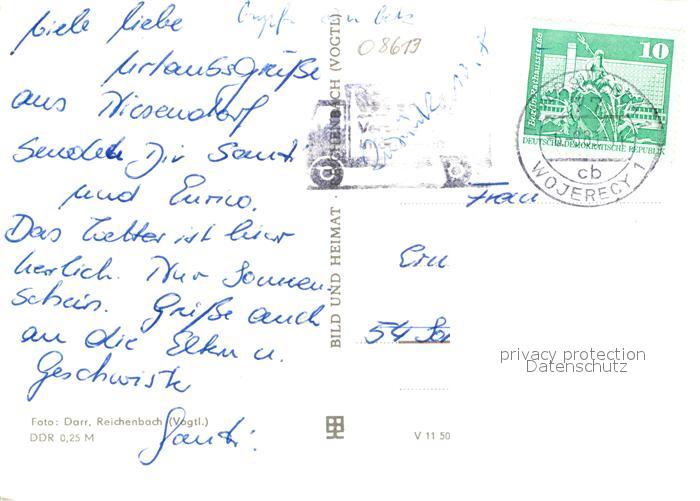 viele liebe
Urlaubsgrüße
aus Niesendorf
senden Dir Santi
und Enrico.
Das Wetter ist hier
herlich. Nur Sonnen-
schein. Grüße auch
an die Eltern u.
Geschwister
Santi.
Foto: Darr, Reichenbach (Vogtl.)
DDR 0,25 M
BILD UND HEIMAT · REICHENBACH (VOGTL)
V 11 50
08613
10
Berlin, Rathausstraße
DEUTSCHE DEMOKRATISCHE REPUBLIK
cb
WOJERECY 1
Frau
54
privacy protection
Datenschutz